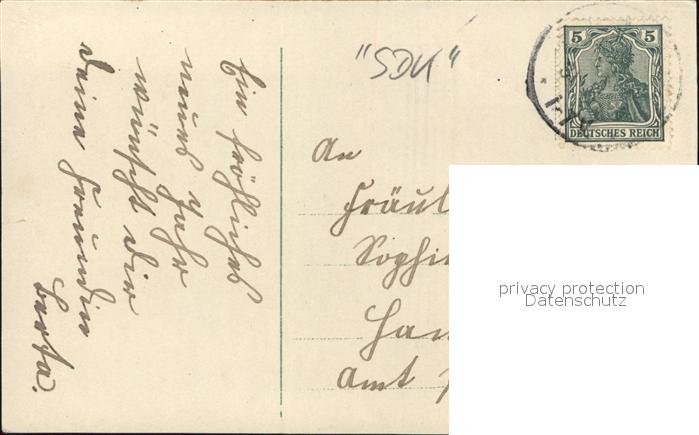 Ein fröhliches
neues Jahr
wünscht dir
deine Freundin
Berta.
"SDK"
5 5
DEUTSCHES REICH
An
Fräul
Sophi
Ha
Amt
privacy protection
Datenschutz